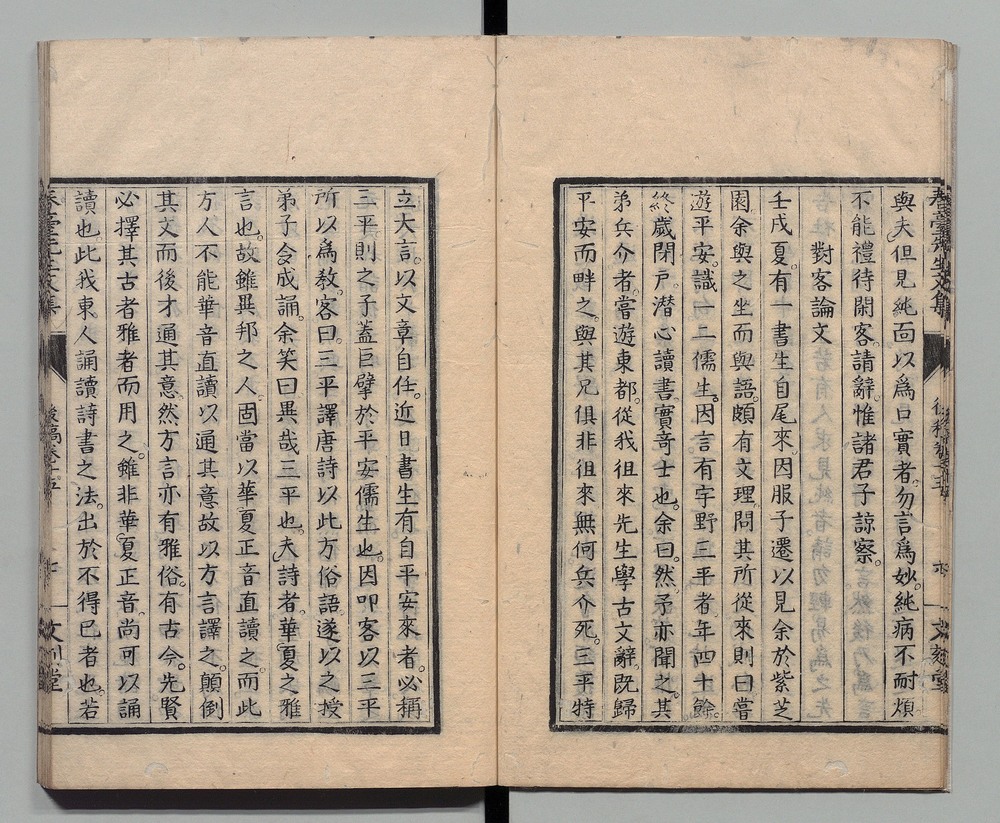 與夫但見純面以爲口實者勿言爲妙。純病不耐煩
不能禮待閑客。請辭。惟諸君子諒察。
對客論文
壬戌夏。有一書生自尾來。因服子遷以見余於紫芝
園。余與之坐而與語。頗有文理。問其所從來。則曰嘗
遊平安。識一二儒生。因言有宇野三平者。年四十餘。
終歲閉戶。潛心讀書。實奇士也。余曰。然。予亦聞之。其
弟兵介者。嘗遊東都。從我徂來先生學古文辭。既歸
平安而畔之。與其兄俱非徂來。無何。兵介死。三平特
立大言。以文章自任。近日書生有自平安來者。必稱
三平。則三子蓋巨擘於平安儒生也。因叩客以三平
所以爲教。客曰。三平譯唐詩以此方俗語。遂以之授
弟子。令成誦。余笑曰。異哉三平也。夫詩者。華夏之雅
言也。故雖異邦之人。固當以華夏正音直讀之。而此
方人不能華音直讀以通其意。故以方言譯之。顛倒
其文而後才通其意。然方言亦有雅俗。有古今。先賢
必擇其古者雅者而用之。雖非華夏正音。尚可以誦
讀也。此我東人誦讀詩書之法。出於不得已者也。若
春臺先生文集
後稿卷十五
文刻堂